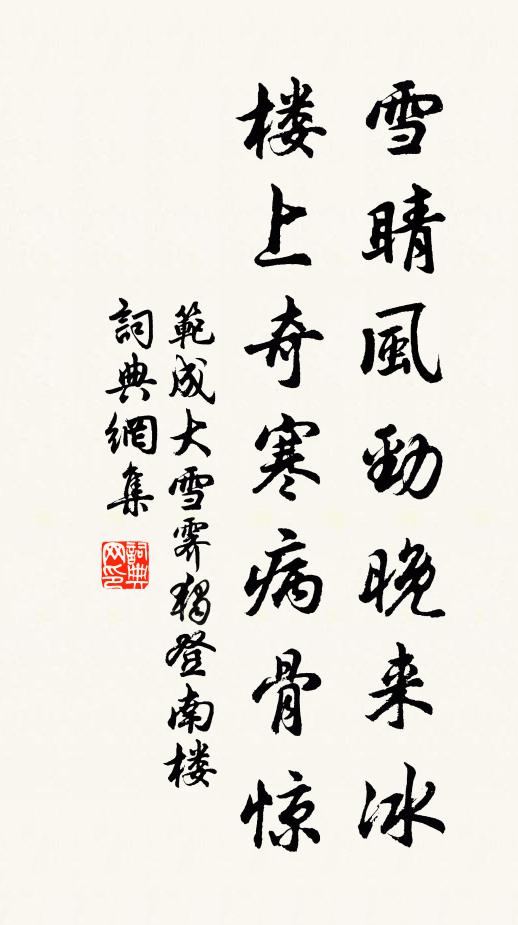 雪晴風勁晚来冰
楼上奇寒病骨惊
範成大雪霽獨登南楼
詞典網集
詞典网印